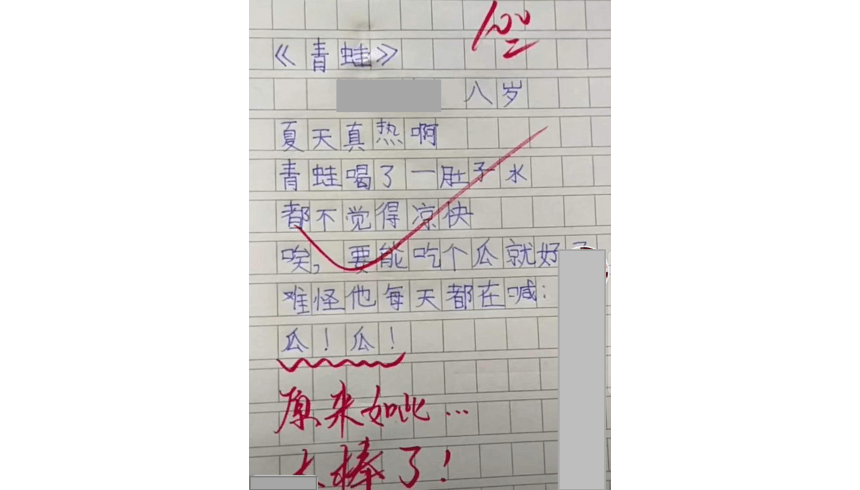 100
《青蛙》
八岁
夏天真热啊
青蛙喝了一肚子水
都不觉得凉快
唉，要能吃个瓜就好了
难怪他每天都在喊：
瓜！瓜！
原来如此…
太棒了！